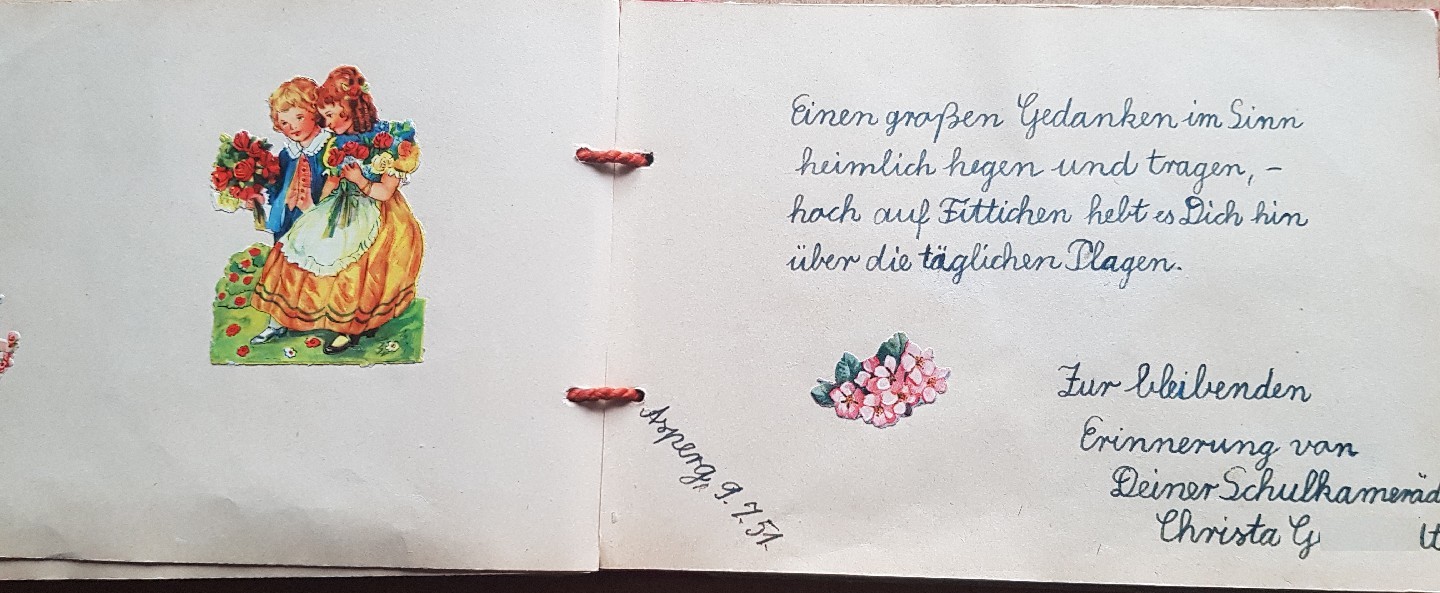 Einen großen Gedanken im Sinn
heimlich hegen und tragen, –
hoch auf Fittichen hebt es Dich hin
über die täglichen Plagen.
Zur bleibenden
Erinnerung von
Deiner Schulkameräd
Christa G
Asperg, 9.7.51.